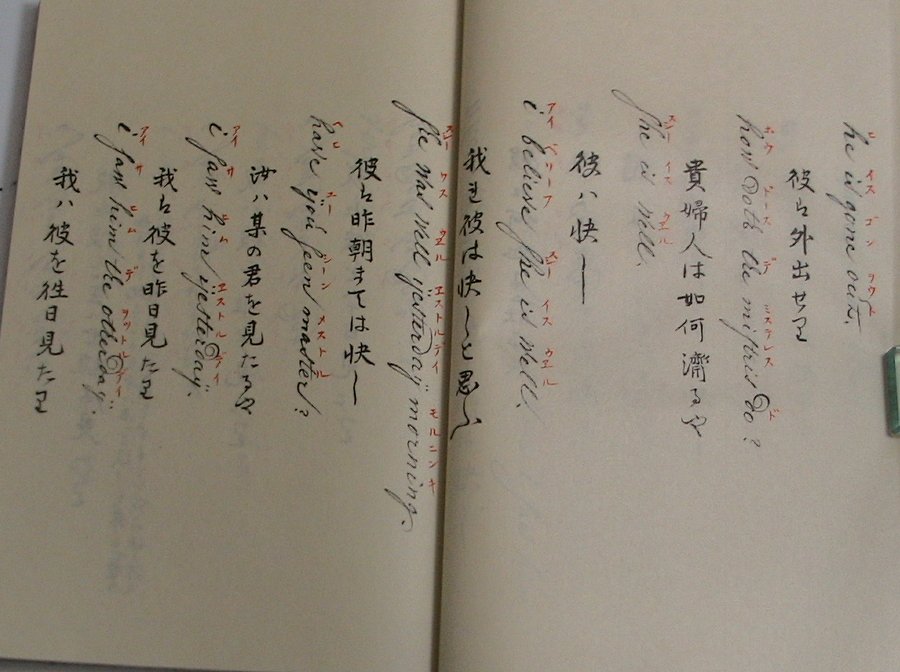 he is gone out.
ヒ イス ゴン ヲウト
彼ハ外出せり
how doth the mistris do?
ホウ ドース デ ミステレス ド
貴婦人は如何済るや
She is well.
スー イス ウエル
彼ハ快し
i believe she is well.
アイ ビリーフ スー イス ウエル
我レ彼は快しと思ふ
She was well yesterday morning.
スー ワス ウエル エストルデイ モルニンキ
彼ハ昨朝まては快し
have you seen master?
ヘヒ ユー シーン メストル
汝ハ某の君を見たるや
i saw him yesterday.
アイ サ ヒム エストルデイ
我ハ彼を昨日見たり
i saw him the other day.
アイ サ ヒム デ ヲットル デイ
我ハ彼を往日見たり